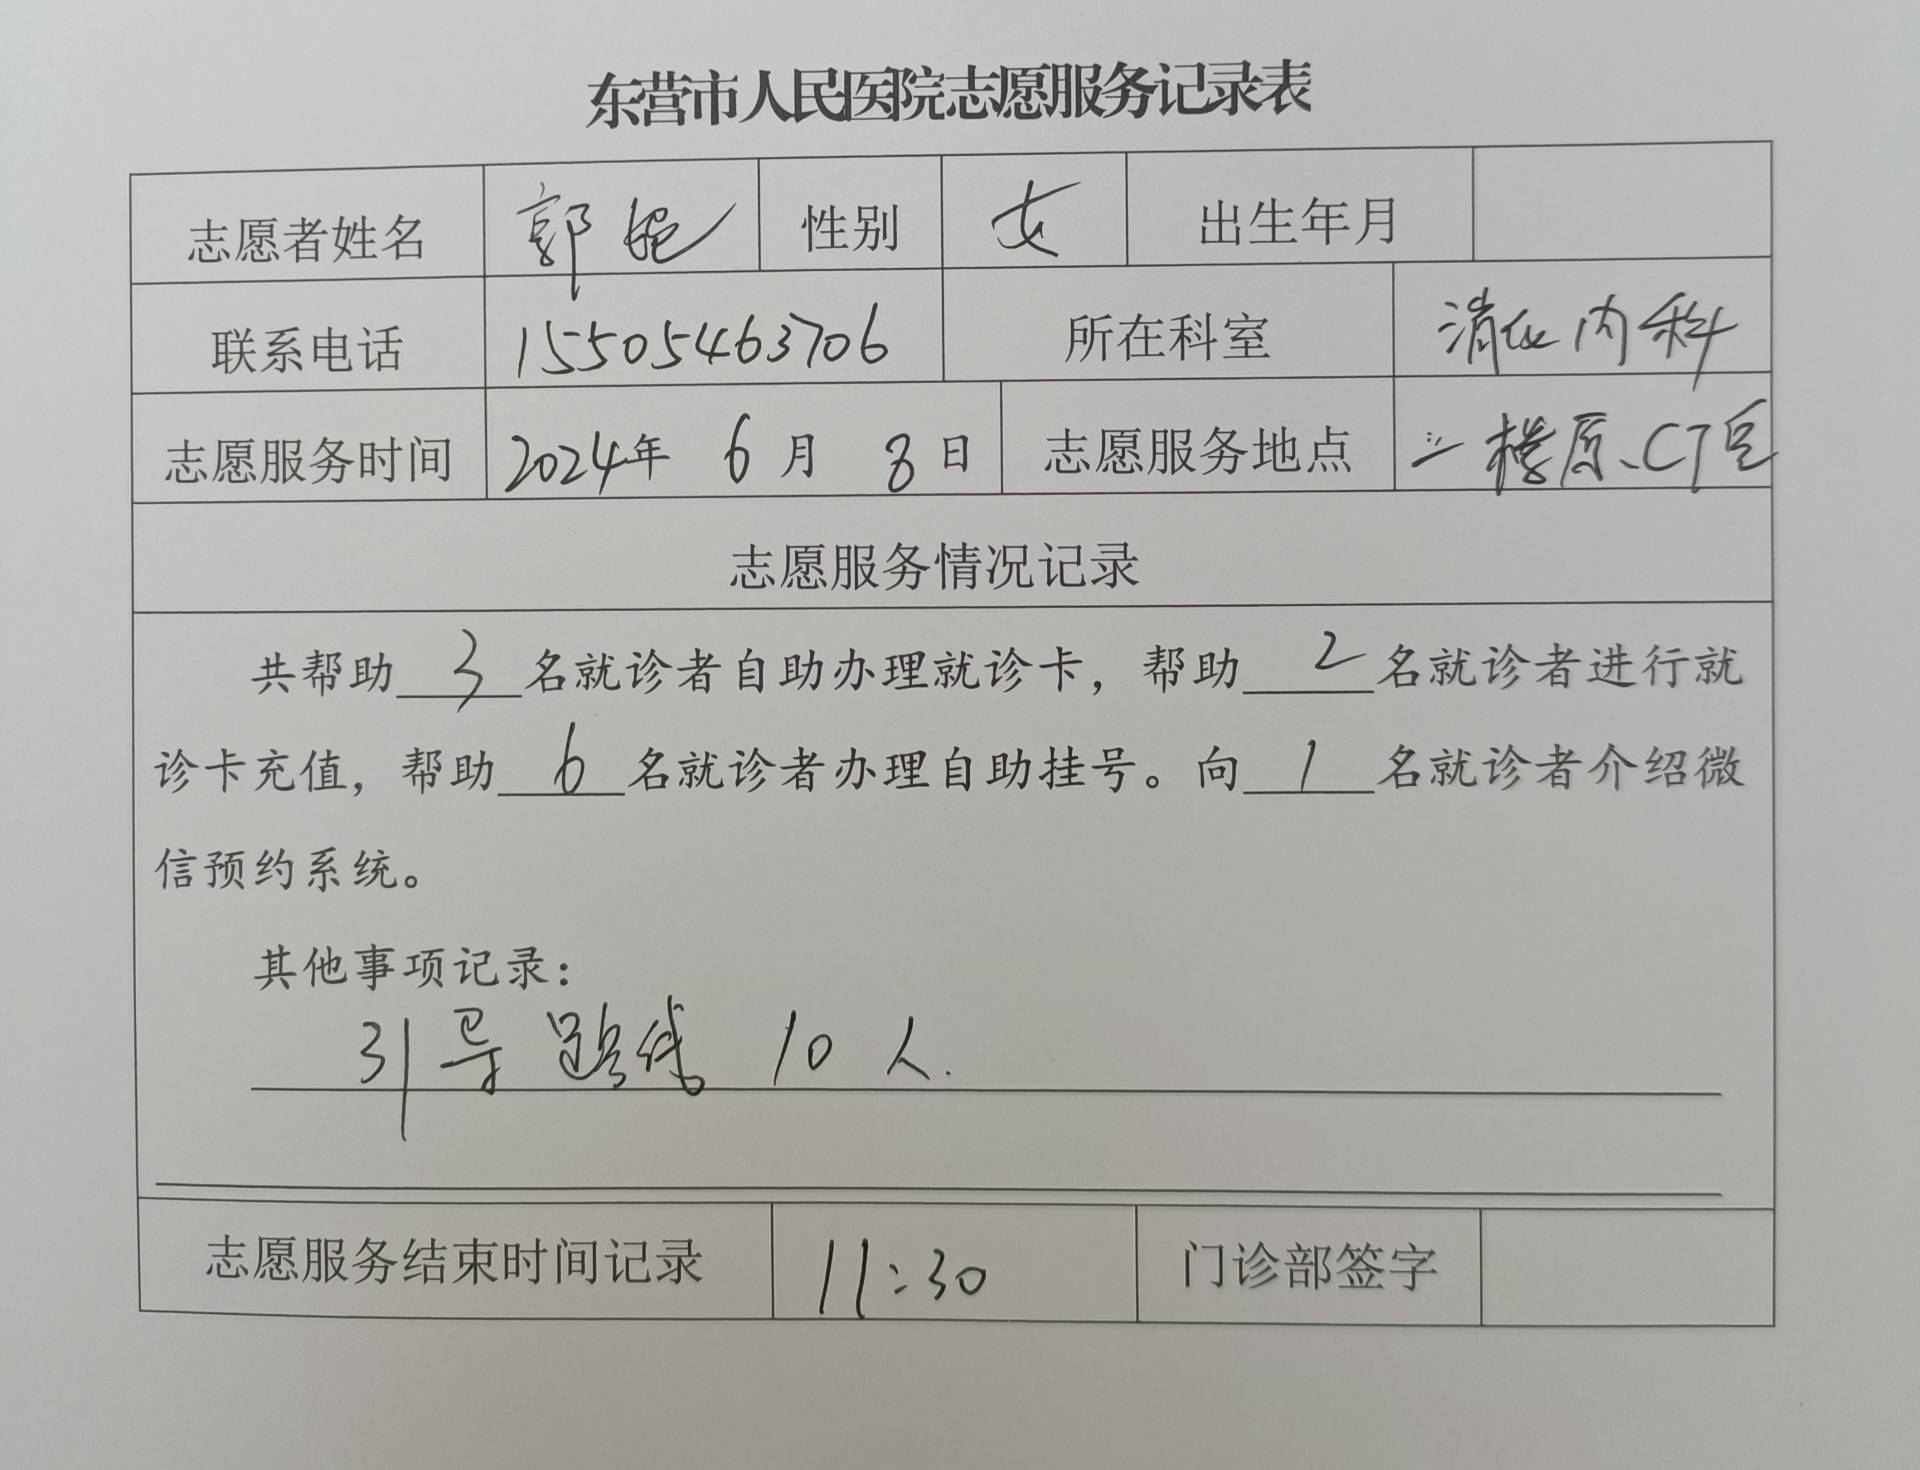 东营市人民医院志愿服务记录表
志愿者姓名 郭 性别 女 出生年月
联系电话 15505463706 所在科室 消化内科
志愿服务时间 2024年 6月 8日 志愿服务地点 楼 CT室
志愿服务情况记录
共帮助 3 名就诊者自助办理就诊卡，帮助 2 名就诊者进行就
诊卡充值，帮助 6 名就诊者办理自助挂号。向 1 名就诊者介绍微
信预约系统。
其他事项记录：
引导路线 10人.
志愿服务结束时间记录 11:30 门诊部签字